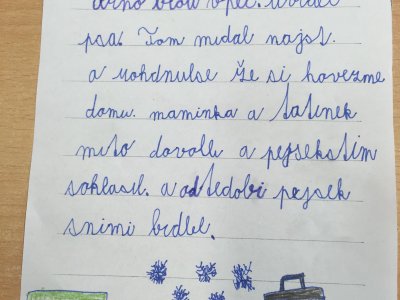 psa. Tom midal najst.
a uohdnulse že si hovezme
domu. maminka a tatinek
mito dovolli a pejsekstim
soklasil. a odtedobi pejsek
snimi bidlel.